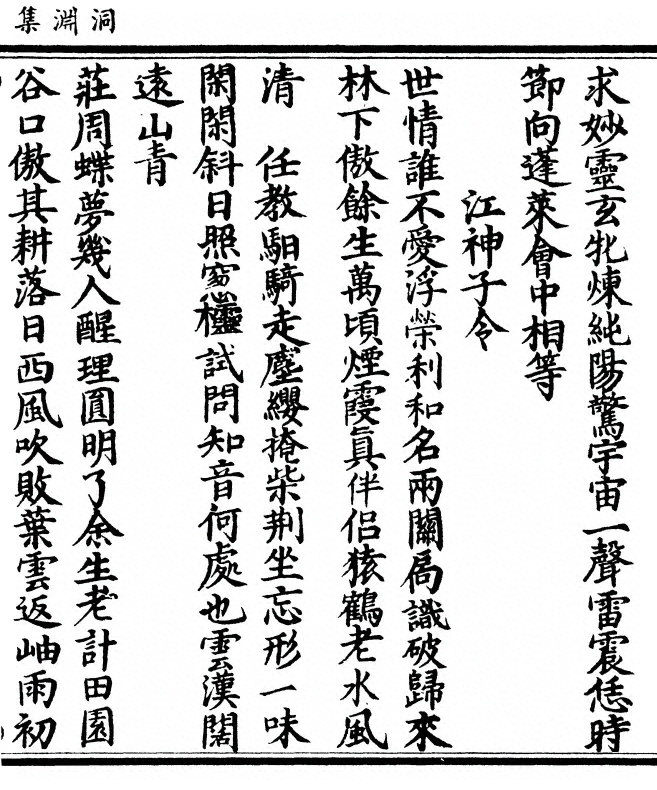 洞淵集
求妙靈玄牝煉純陽驚宇宙一聲雷震恁時
節向蓬萊會中相等
江神子令
世情誰不愛浮榮利和名兩關扃識破歸來
林下傲餘生萬頃煙霞眞伴侶猿鶴老水風
清　任教馹騎走塵纓掩柴荆坐忘形一味
閑閑斜日照窻櫺試問知音何處也雲漢闊
遠山青
莊周蝶夢幾人醒理圓明了余生老計田園
谷口傲其耕落日西風吹敗葉雲返岫雨初